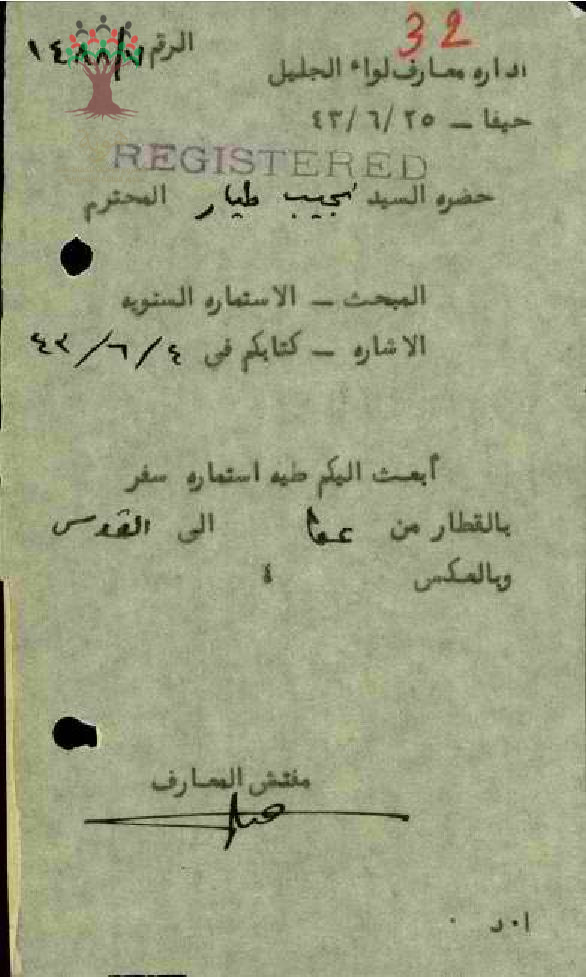 32
الرقم ١٤٨٨/٧
اداره معارف لواء الجليل
حيفا ــ ٢٥/٦/٤٣
REGISTERED
حضره السيد نجيب طيار المحترم
المبحث ــ الاستماره السنويه
الاشاره ــ كتابكم في ٤/٦/٤٣
أبعث اليكم طيه استماره سفر
بالقطار من عكا الى القدس
وبالعكس ٤
مفتش المعارف
ا٠د ٠